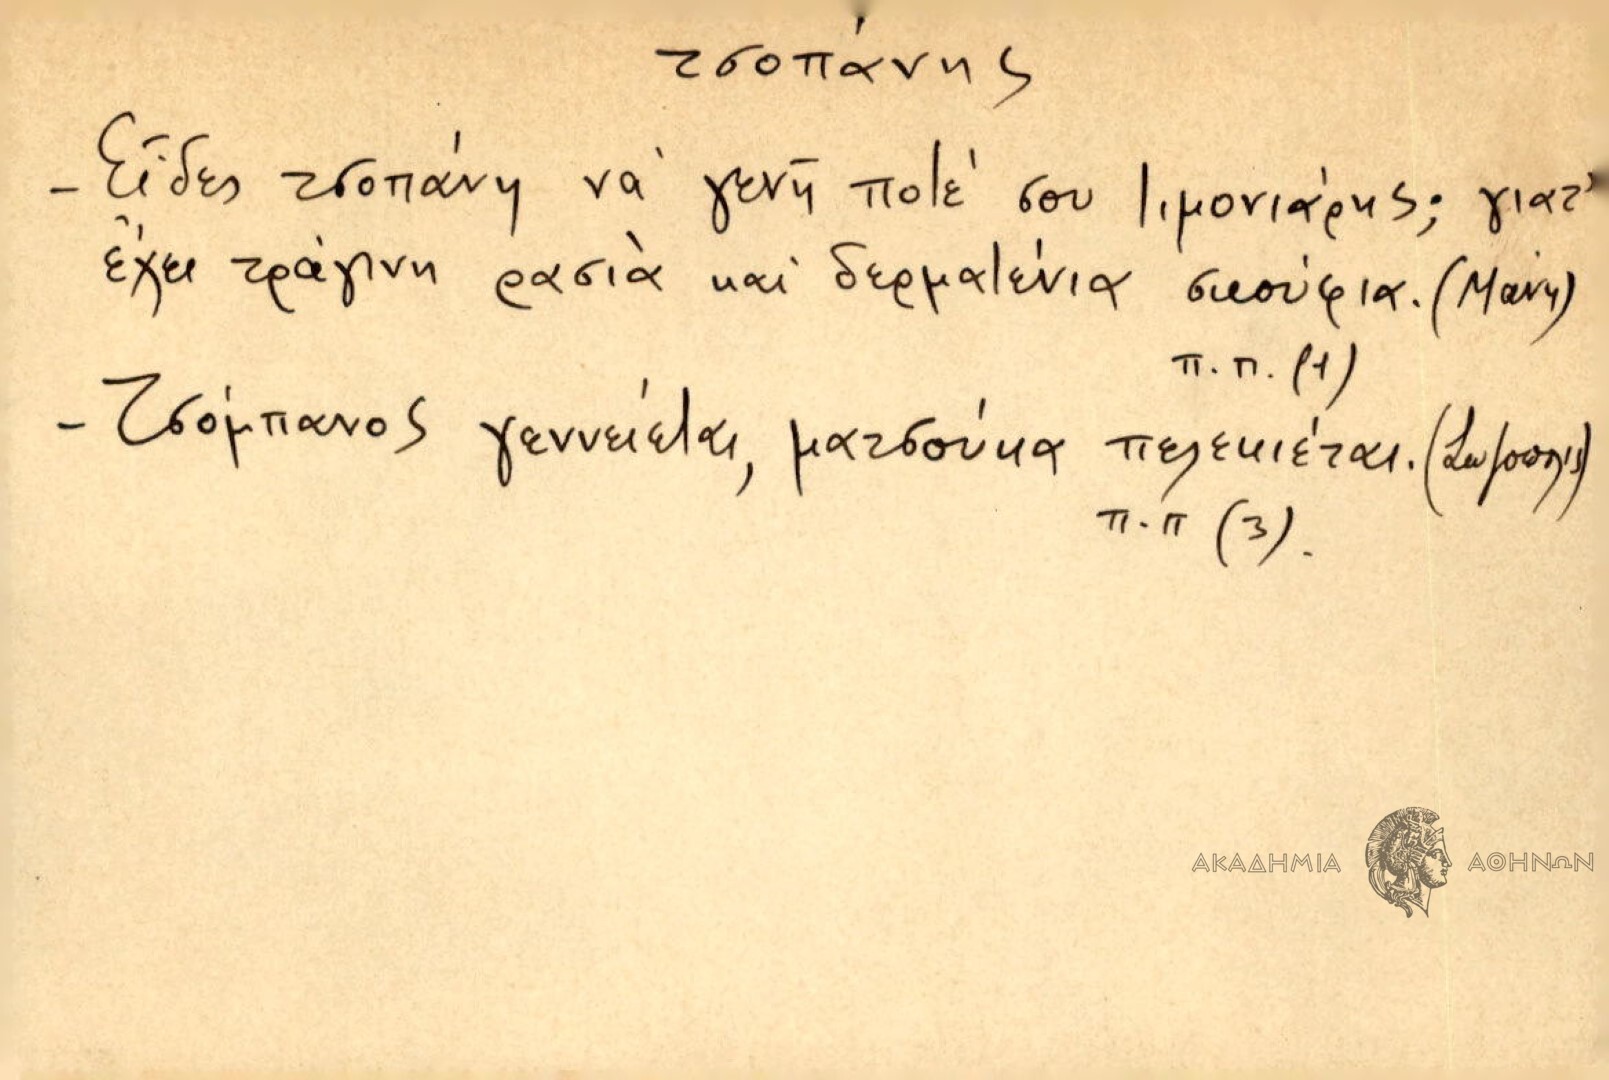 τσοπάνης
- Εἶδες τσοπάνη νὰ γενῆ ποτέ σου τιμονιάρης; γιατ'
ἔχει τράγινη ρασιὰ καὶ δερματένια σκούφια. (Μάνη)
π. π. (1)
- Τσόμπανος γεννειέται, ματσούκα πελεκιέται. (Σωζόπολις)
π.π (3).
ΑΚΑΔΗΜΙΑ ΑΘΗΝΩΝ